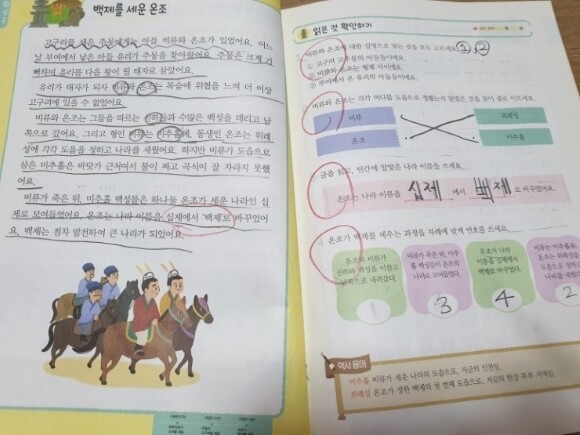 백제를 세운 온조
고구려를 세운 주몽에게는 아들 비류와 온조가 있었어요. 어느
날 부여에서 낳은 아들 유리가 주몽을 찾아왔어요. 주몽은 크게 기
뻐하며 유리를 다음 왕이 될 태자로 삼았어요.
유리가 태자가 되자 비류와 온조는 목숨에 위협을 느껴 더 이상
고구려에 있을 수 없었어요.
비류와 온조는 그들을 따르는 신하들과 수많은 백성을 데리고 남
쪽으로 갔어요. 그리고 형인 비류는 미추홀에, 동생인 온조는 위례
성에 각각 도읍을 정하고 나라를 세웠어요. 하지만 비류가 도읍으로
삼은 미추홀은 바닷가 근처여서 물이 짜고 곡식이 잘 자라지 못했
어요.
비류가 죽은 뒤, 미추홀 백성들은 하나둘 온조가 세운 나라인 십
제로 모여들었어요. 온조는 나라 이름을 십제에서 '백제'로 바꾸었어
요. 백제는 점차 발전하여 큰 나라가 되었어요.
읽은 것 확인하기
비류와 온조에 대한 설명으로 맞는 것을 모두 고르세요. 1, 2
① 고구려 고주몽의 아들들이에요.
② 비류와 온조는 형제 사이예요.
③ 부여에서 온 유리의 아들들이에요.
비류와 온조는 각각 어디를 도읍으로 정했는지 알맞은 것을 찾아 줄로 이으세요.
비류
위례성
온조
미추홀
글을 읽고, 빈칸에 알맞은 나라 이름을 쓰세요.
온조는 나라 이름을 십제 에서 백제 로 바꾸었어요.
온조가 백제를 세우는 과정을 차례에 맞게 번호를 쓰세요.
온조와 비류가
신하와 백성을 이끌고
남쪽으로 내려갔다.
1
비류가 죽은 뒤, 미추
홀 백성들이 온조의
나라로 모여들었다.
3
온조가 나라
이름을 십제에서
백제로 바꾸었다.
4
비류는 미추홀을,
온조는 위례성을
도읍으로 정하고
나라를
2
역사 용어
미추홀 비류가 세운 나라의 도읍으로, 지금의 인천임.
위례성 온조가 정한 백제의 첫 번째 도읍으로, 지금의 한강 북쪽 지역임.